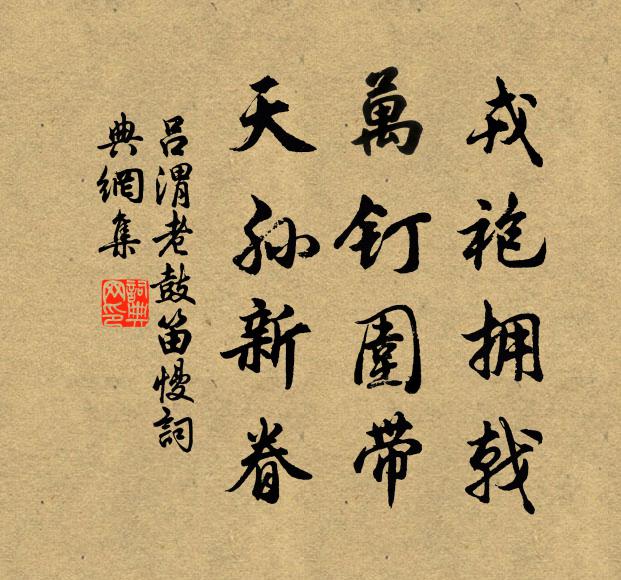 戎袍拥戟
萬钉圍带
天孙新眷
吕渭老鼓笛慢詞
典網集
詞典
网印